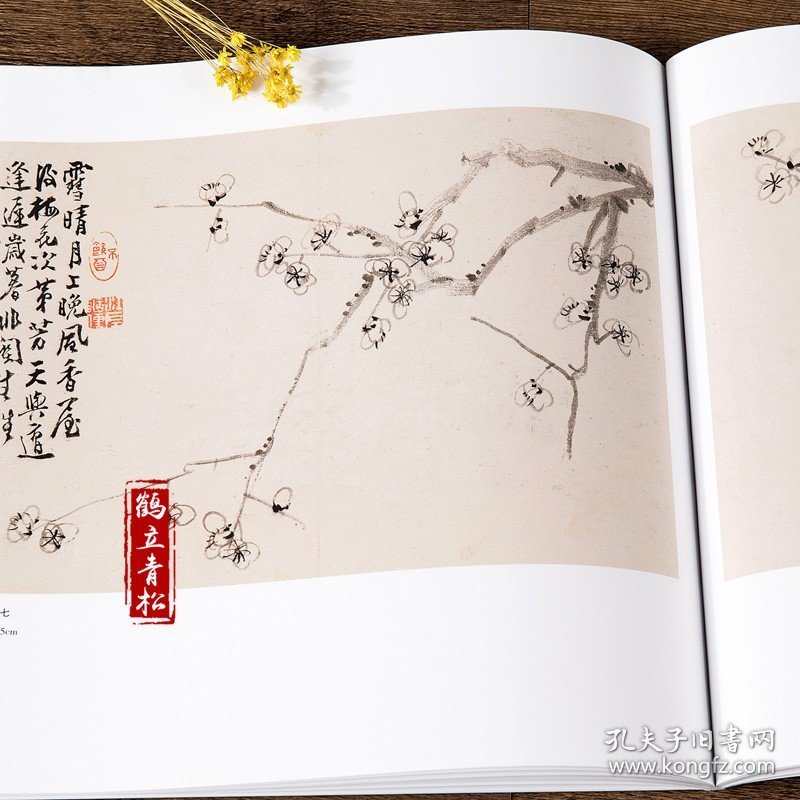 雪晴月上晚風香屋
後梅花次第芳天與
逢遲歲暮非關生
七
5cm
鶴立青松
孔夫子旧书网
www.kongfz.com